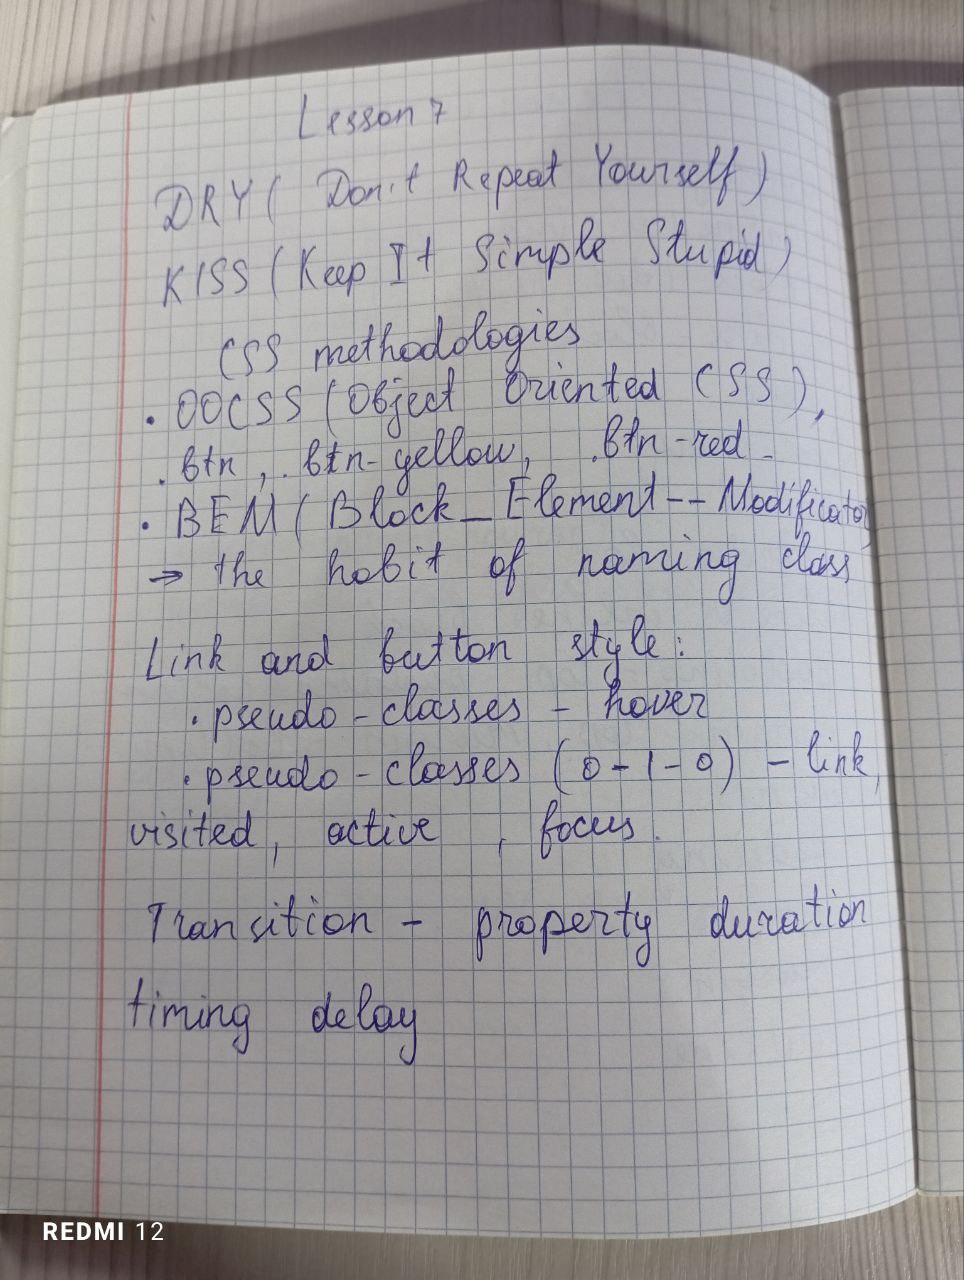 Lesson 7
DRY ( Don't Repeat Yourself )
KISS ( Keep It Simple Stupid )
CSS methodologies
• OOCSS ( Object Oriented CSS ),
.btn, .btn-yellow, .btn-red
• BEM ( Block_Element--Modificator
→ the habit of naming class
Link and button style:
• pseudo-classes - hover
• pseudo-classes (0-1-0) - link,
visited, active , focus.
Transition - property duration
timing delay
REDMI 12